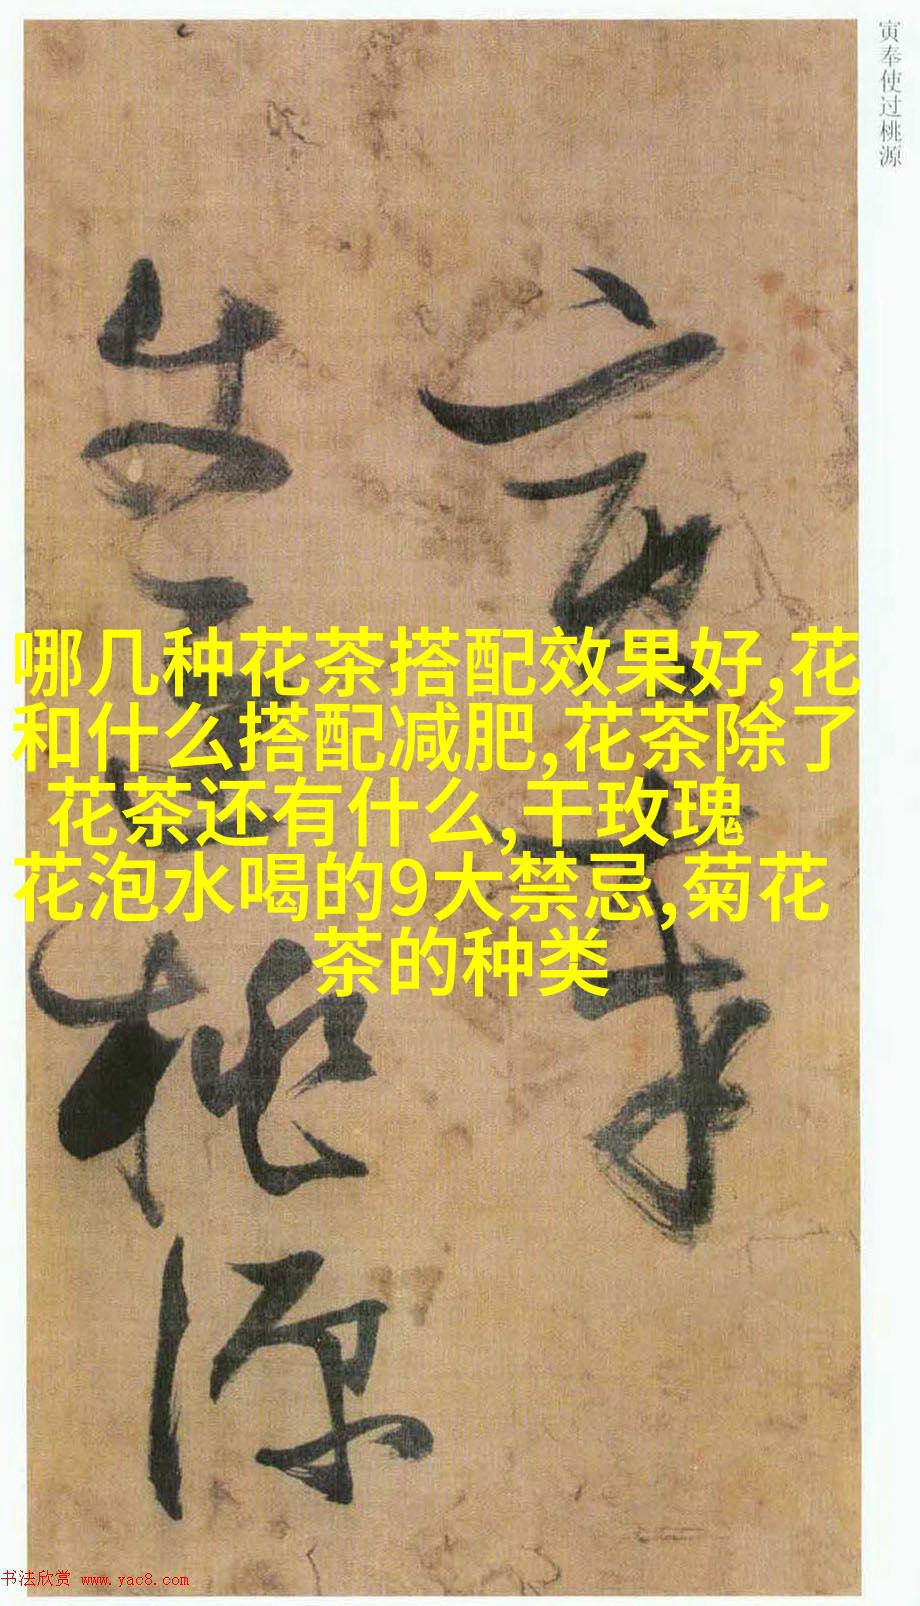 寅奉使过桃源
寅奉
使过桃源
哪几种花茶搭配效果好,花
和什么搭配减肥,花茶除了
花茶还有什么,干玫瑰
花泡水喝的9大禁忌,菊花
茶的种类
书法欣赏 www.yac8.com